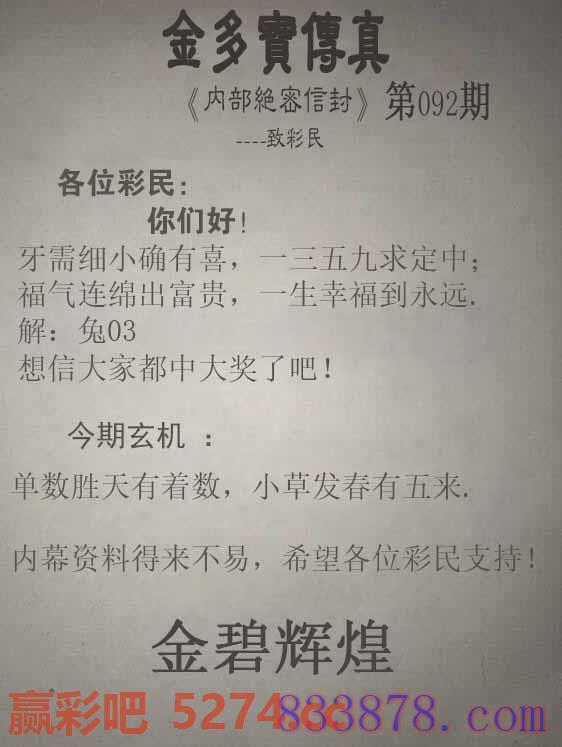 金多寶傳真
《内部絶密信封》第092期
----致彩民
各位彩民:
你们好!
牙需细小确有喜，一三五九求定中;
福气连绵出富贵，一生幸福到永远.
解: 兔03
想信大家都中大奖了吧!
今期玄机 :
单数胜天有着数，小草发春有五来.
内幕资料得来不易，希望各位彩民支持!
金碧辉煌
赢彩吧 5274.cc
833878.com